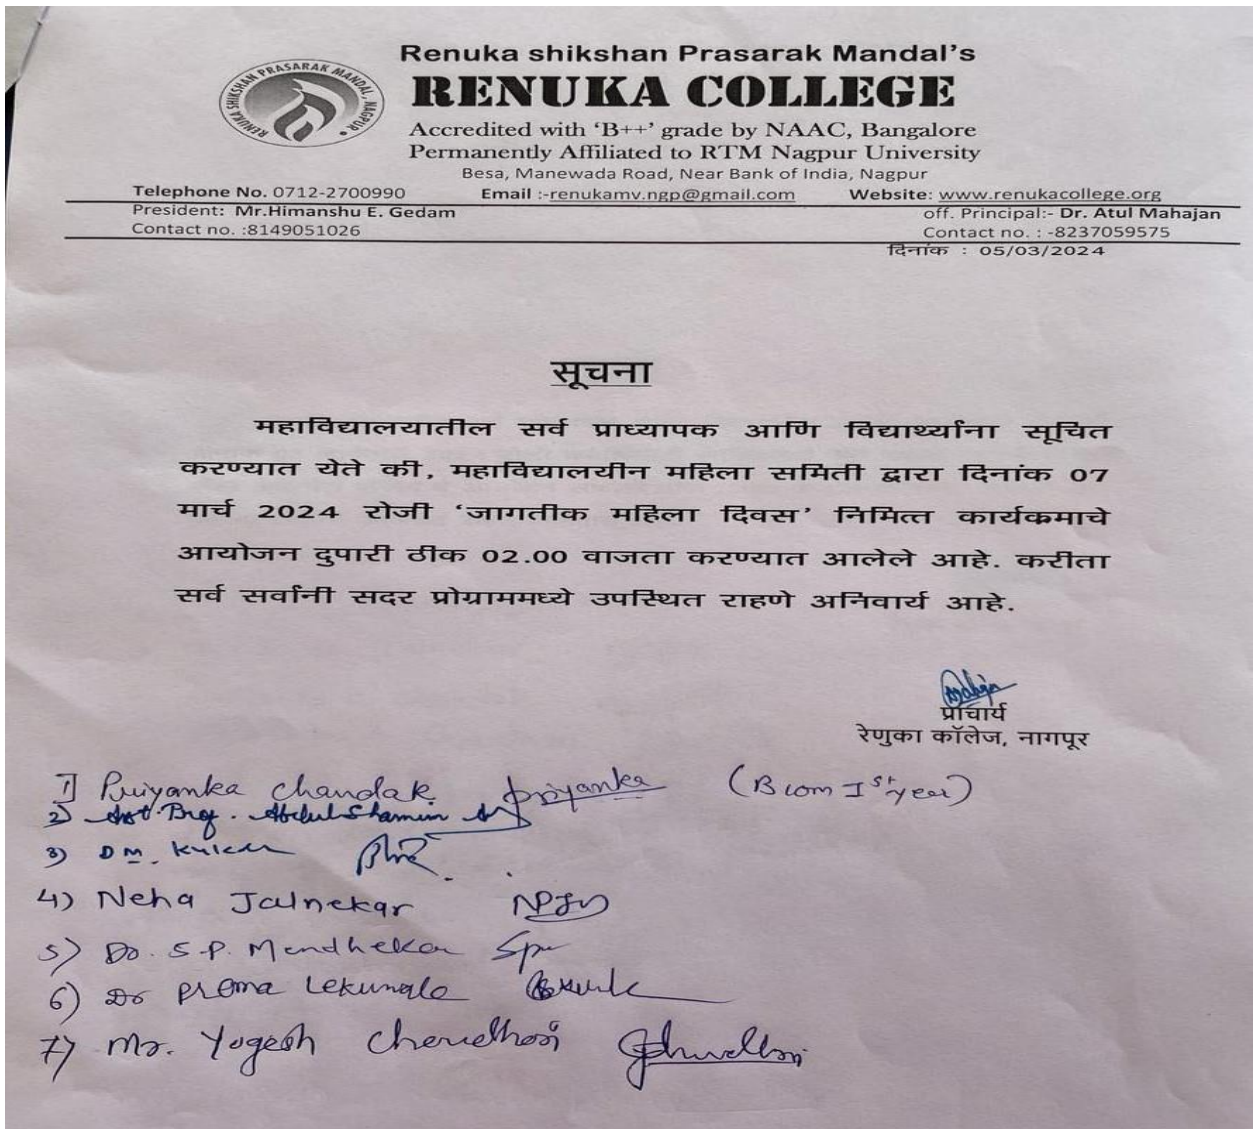 RENUKA SHIKSHAN PRASARAK MANDAL, NAGPUR
Renuka shikshan Prasarak Mandal's
RENUKA COLLEGE
Accredited with 'B++' grade by NAAC, Bangalore
Permanently Affiliated to RTM Nagpur University
Besa, Manewada Road, Near Bank of India, Nagpur
Telephone No. 0712-2700990 Email :-renukamv.ngp@gmail.com Website: www.renukacollege.org
President: Mr.Himanshu E. Gedam off. Principal:- Dr. Atul Mahajan
Contact no. :8149051026 Contact no. : -8237059575
दिनांक : 05/03/2024
सूचना
महाविद्यालयातील सर्व प्राध्यापक आणि विद्यार्थ्यांना सूचित
करण्यात येते की, महाविद्यालयीन महिला समिती द्वारा दिनांक 07
मार्च 2024 रोजी 'जागतीक महिला दिवस' निमित्त कार्यकमाचे
आयोजन दुपारी ठीक 02.00 वाजता करण्यात आलेले आहे. करीता
सर्व सर्वांनी सदर प्रोग्राममध्ये उपस्थित राहणे अनिवार्य आहे.
प्राचार्य
रेणुका कॉलेज, नागपूर
1] Priyanka Chandak Priyanka (B com I st year)
2) Ast. Prof. Abdul Shamim
3) D M.
4) Neha Jalnekar
5) Dr. S.P. Mendhekar
6) Dr Prema Lekurwale
7) Mr. Yogesh Choudhari